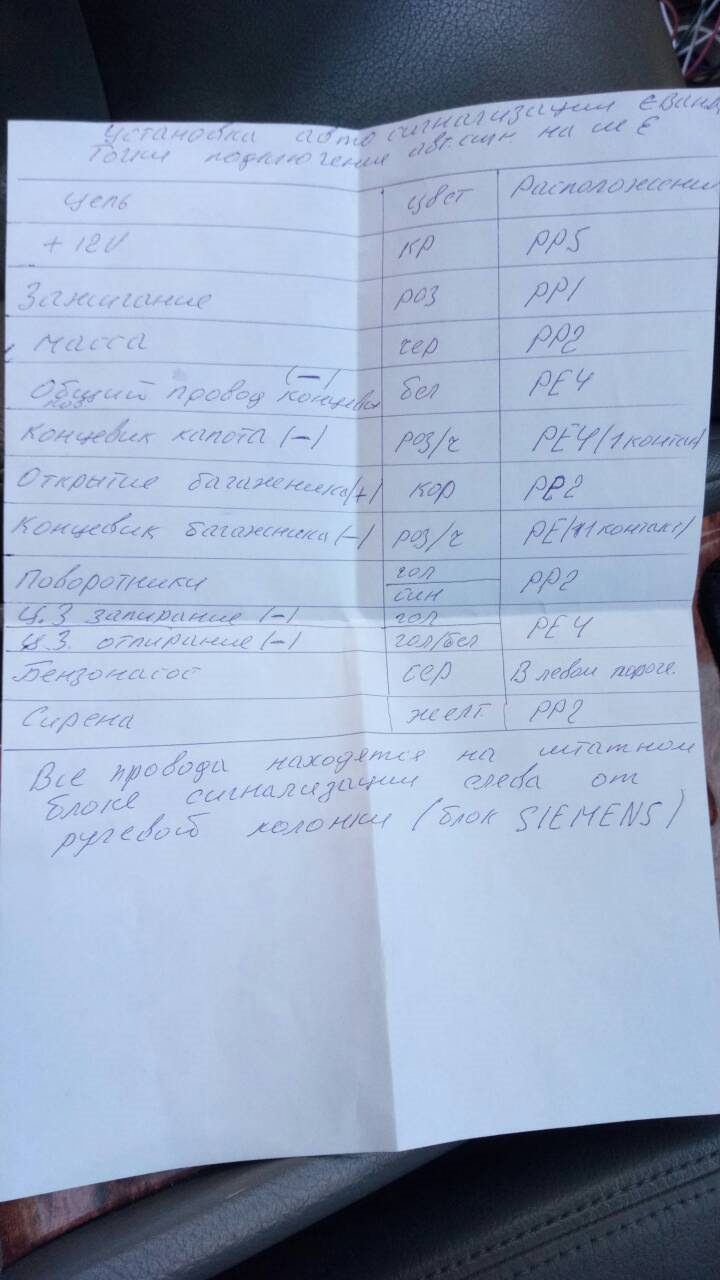 Установка авто сигнализации
Точки подключения авт.сигн. на
цепь цвет Расположение
+ 12V КР PP5
Зажигание роз PP1
масса чер PP2
(-)
Общий провод концевы бел PE4
Концевик капота (-) роз/ч PE4 (1 контак)
Открытие багаженика (+) кор PP2
Концевик багаженика (-) роз/ч PE/ 1 контакт)
Поворотники гол PP2
син
Ц.З запирание (-) гол PE4
Ц.З. отпирание (-) гол/бел
Бензонасос сер В левом пороге.
Сирена желт. PP2
Все провода находятся на штатном
блоке сигнализации слева от
рулевой колонки (блок SIEMENS)